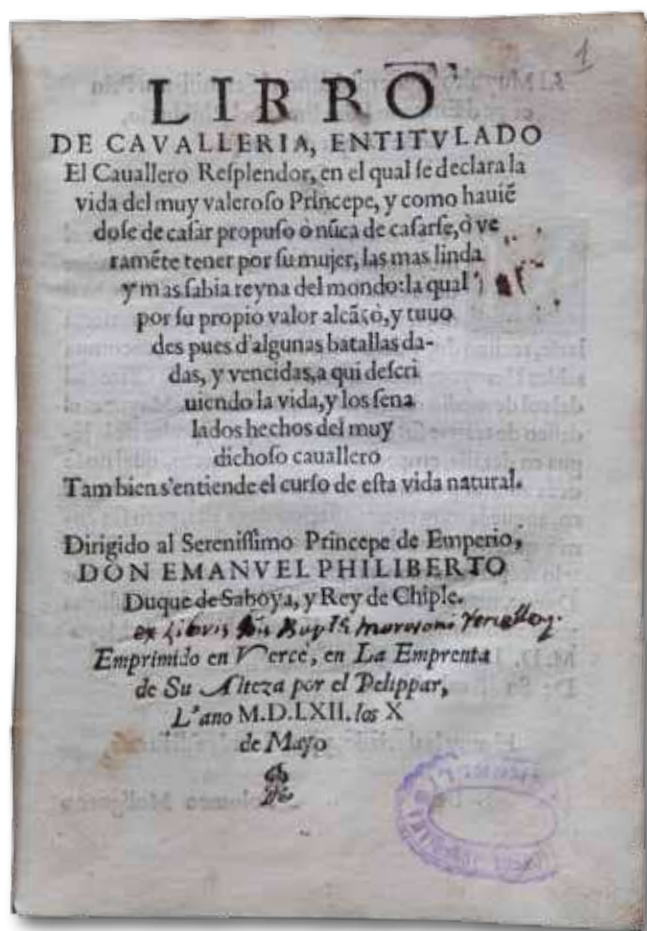 1
LIBRO
DE CAVALLERIA, ENTITVLADO
El Cauallero Reſplendor, en el qual ſe declara la
vida del muy valeroſo Princepe, y como hauiẽ
doſe de caſar propuſo ò nũca de caſarſe, ò ve
ramẽte tener por ſu mujer, las mas linda
y mas ſabia reyna del mondo: la qual
por ſu propio valor alcãçò, y tuuo
des pues d'algunas batallas da-
das, y vencidas, a qui deſcri
uiendo la vida, y los ſena
lados hechos del muy
dichoſo cauallero
Tam bien s'entiende el curſo de eſta vida natural.
Dirigido al Sereniſſimo Princepe de Emperio,
DON EMANVEL PHILIBERTO
Duque de Saboya, y Rey de Chiple.
ex Libris
Emprimido en Verce, en La Emprenta
de Su Alteza por el Pelippar,
L'ano M.D.LXII. los X
de Mayo